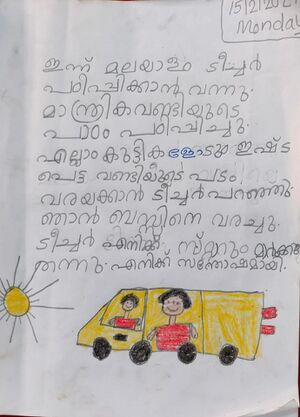 15/2/2021
Monday
ഇന്ന് മലയാളം ടീച്ചർ
പഠിപ്പിക്കാൻ വന്നു.
മാന്ത്രികവണ്ടിയുടെ
പാഠം പഠിപ്പിച്ചു.
എല്ലാം കുട്ടികളോടും ഇഷ്ട
പെട്ട വണ്ടിയുടെ പടം
വരയക്കാൻ ടീച്ചർ പറഞ്ഞു.
ഞാൻ ബസ്സിനെ വരച്ചു.
ടീച്ചർ എനിക്ക് സ്റ്റാറും
തന്നു. എനിക്ക് സന്തോഷമായി.